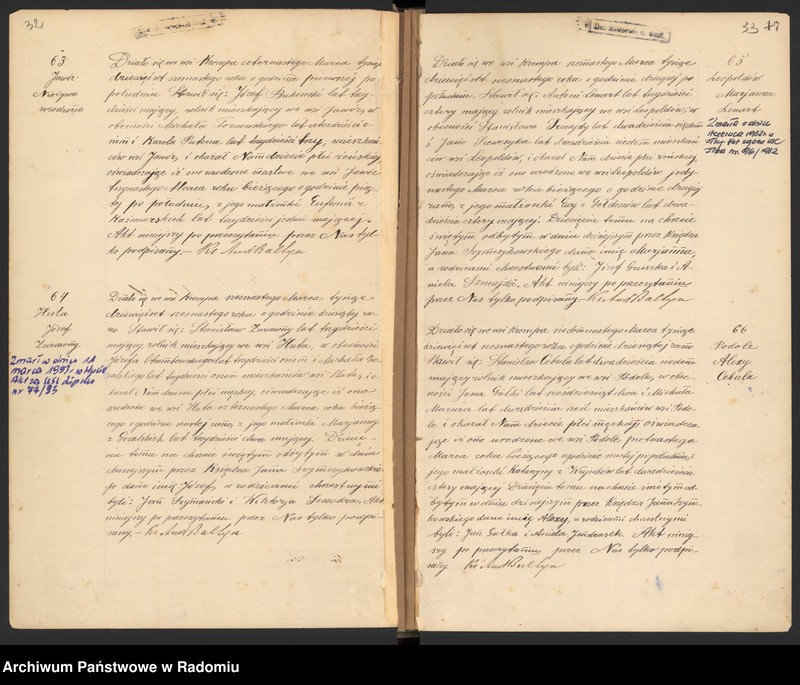 32
63
Jawor
Nieżywo
urodzone
Działo się we wsi Krempa czternastego Marca tysiąc
dziewięćset szesnastego roku o godzinie pierwszej po
południu. Stawił się: Józef lat trzy-
dzieści mający, rolnik mieszkający we wsi Jawor, w
obecności Michała lat czterdzieści o-
śm i Karola lat trzydzieści trzy, mieszkań-
ców wsi Jawor, i okazał Nam dziecię płci żeńskiej,
oświadczając iż ono urodzone martwe we wsi Jawor
trzynastego Marca roku bieżącego o godzinie pią-
tej po południu, z jego małżonki Eufemii z
Kaźmierskich lat trzydzieści jeden mającej.
Akt niniejszy po przeczytaniu przez Nas tyl-
ko podpisany. — Ks And Ballyn
64
Huta
Józef
Żurawny
Zmarł w dniu 11
marca 1993 w Hucie
Akt za USC Lipsko
nr 77/93
Działo się we wsi Krempa szesnastego Marca tysiąc
dziewięćset szesnastego roku o godzinie dziesiątej ra-
no. Stawił się: Stanisław Żurawny lat trzydzieści
mający, rolnik mieszkający we wsi Huta, w obecności
Józefa lat trzydzieści ośm i Michała
lat trzydzieści ośm mieszkańców wsi Huta, i o-
kazał Nam dziecię płci męskiej, oświadczając iż ono
urodzone we wsi Huta czternastego Marca roku bieżą-
cego o godzinie szóstej rano, z jego małżonki Marjanny
z Góralskich lat trzydzieści dwa mającej. Dziecię-
ciu temu na chrzcie świętym odbytym w dniu
dzisiejszym przez Księdza Jana Szymczykowskie-
go dano imię Józef, a rodzicami chrzestnymi
byli: Jan Szymański i Wiktorja. Akt
niniejszy po przeczytaniu przez Nas tylko podpi-
sany. — Ks And Ballyn
33
65
Leopoldów
Marjanna
Lenart
Zmarła w dniu
Działo się we wsi Krempa szesnastego Marca tysiąc
dziewięćset szesnastego roku o godzinie drugiej po
południu. Stawił się: Antoni Lenart lat trzydzieści
cztery mający rolnik mieszkający we wsi Leopoldów, w
obecności Stanisława Szmajdy lat dwadzieścia siedem
i Jana lat dwadzieścia siedem mieszkań-
ców wsi Leopoldów, i okazał Nam dziecię płci żeńskiej,
oświadczając iż ono urodzone we wsi Leopoldów jedy-
nastego Marca roku bieżącego o godzinie drugiej
rano, z jego małżonki Ewy z Gołdonów lat dwa-
dzieścia cztery mającej. Dziecięciu temu na chrzcie
świętym odbytym w dniu dzisiejszym przez Księdza
Jana Szymczykowskiego dano imię Marjanna,
a rodzicami chrzestnymi byli: Józef Gruszka i A-
niela Szmajda. Akt niniejszy po przeczytaniu
przez Nas tylko podpisany — Ks And Ballyn
66
Podole
Alexy
Cebula
Działo się we wsi Krempa siedmnastego Marca tysiąc
dziewięćset szesnastego roku o godzinie dziesiątej rano.
Stawił się: Stanisław Cebula lat dwadzieścia siedem
mający rolnik mieszkający we wsi Podole, w obec-
ności Jana Gałki lat sześćdziesiąt dwa i Michała
Mazura lat dwadzieścia sześć mieszkańców wsi Podo-
le i okazał Nam dziecię płci męskiej oświadcza-
jąc iż ono urodzone we wsi Podole piętnastego
Marca roku bieżącego o godzinie szóstej po południu, z
jego małżonki Katarzyny z Wójcików lat dwadzieścia
cztery mającej. Dziecięciu temu na chrzcie świętym od-
bytym w dniu dzisiejszym przez Księdza Jana Szym-
czykowskiego dano imię Alexy, a rodzicami chrzestnymi
byli: Jan Gałka i Aniela Jendrasek. Akt niniej-
szy po przeczytaniu przez Nas tylko podpi-
sany. Ks And Ballyn
Archiwum Państwowe w Radomiu